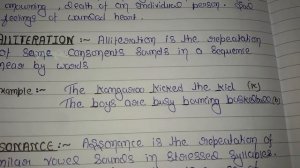 mourning, death of an individual person. Sad
feelings of wounded heart.
ALLITERATION :~ Alliteration is the repeatation
of same Consonents Sounds in a Sequence
near by words
Example :~ The Kangaroo Kicked the Kid (K)
The boys are busy bouncing basketball (B)
SONANCE :~ Assonance is the repeatation of
milar vowel Sounds in Stressed Syllables.